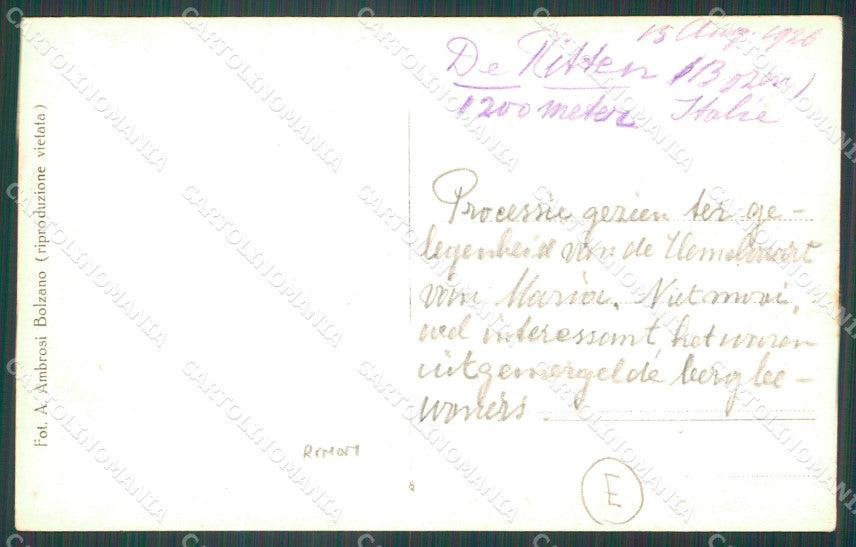 15 Aug. 1926
De Ritten (Bozen)
1200 meter Italie
Processie gezien ter ge-
legenheid van de Hemelvaart
van Maria. Niet mooi,
wel interessant, het waren
uitgemergelde bergbe-
woners
Fot. A. Ambrosi Bolzano (riproduzione vietata)
E
CARTOLINOMANIA